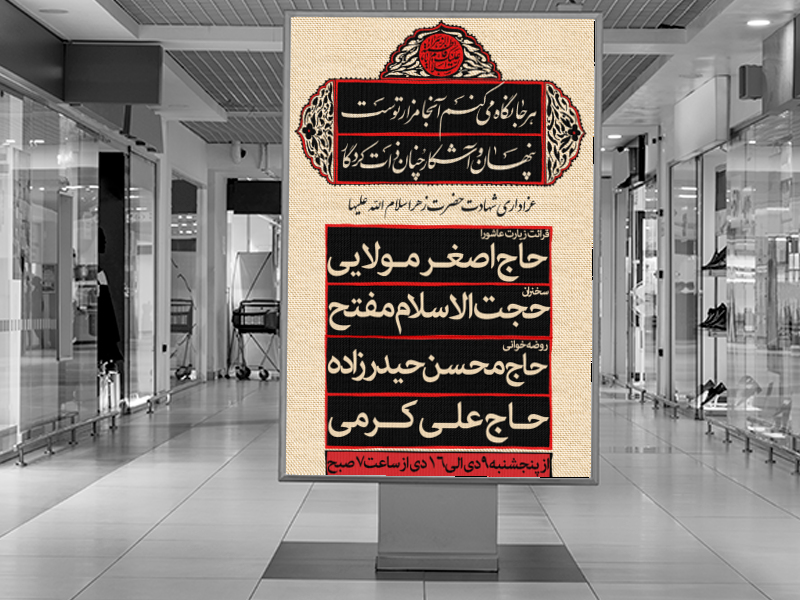 هر جا نگاه می‌کنم آنجا مزار توست
پنهان و آشکار چنان ذات کردگار
عزاداری شهادت حضرت زهرا سلام الله علیها
قرائت زیارت عاشورا
حاج اصغر مولایی
سخنران
حجت الاسلام مفتح
روضه خوانی
حاج محسن حیدرزاده
حاج علی کرمی
از پنجشنبه ۹ دی الی ۱۶ دی از ساعت ۷ صبح